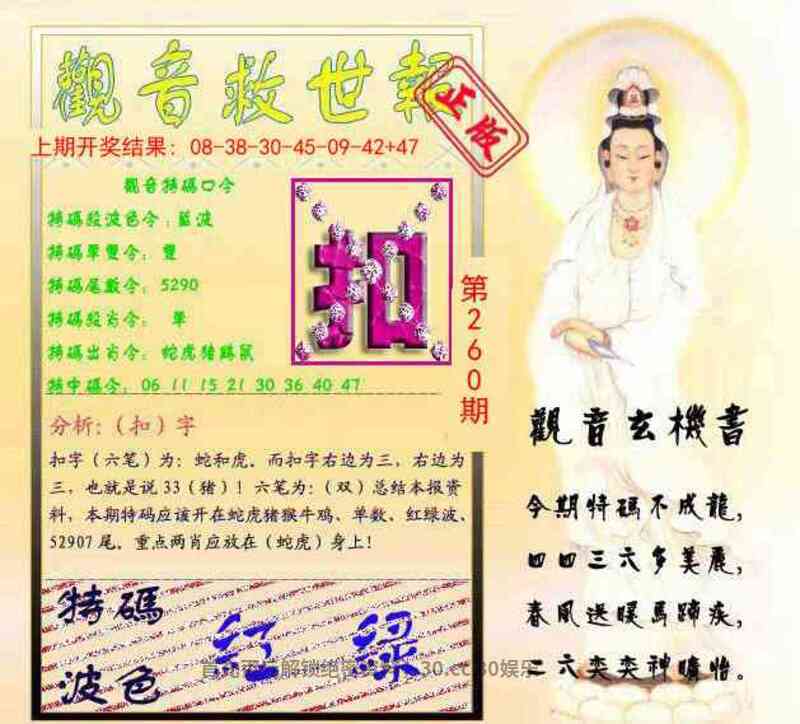 觀音救世報
正版
上期开奖结果：08-38-30-45-09-42+47
觀音特碼口令
特碼段波色令：藍波
特碼單雙令：雙
特碼尾數令：5290
特碼段肖令：單
特碼出肖令：蛇虎猪鷄鼠
特中碼令：06 11 15 21 30 36 40 47
扣
第260期
分析：（扣）字
扣字（六笔）为：蛇和虎。而扣字右边为三，右边为
三，也就是说33（猪）！六笔为：（双）总结本报资
料，本期特码应该开在蛇虎猪猴牛鸡、单数。红绿波、
52907尾。重点两肖应放在（蛇虎）身上！
特碼
波色
红 绿
30娱乐
觀音玄機書
今期特碼不成龍，
四四三六多美麗，
春風送暖馬蹄疾，
三六奕奕神曠怡。